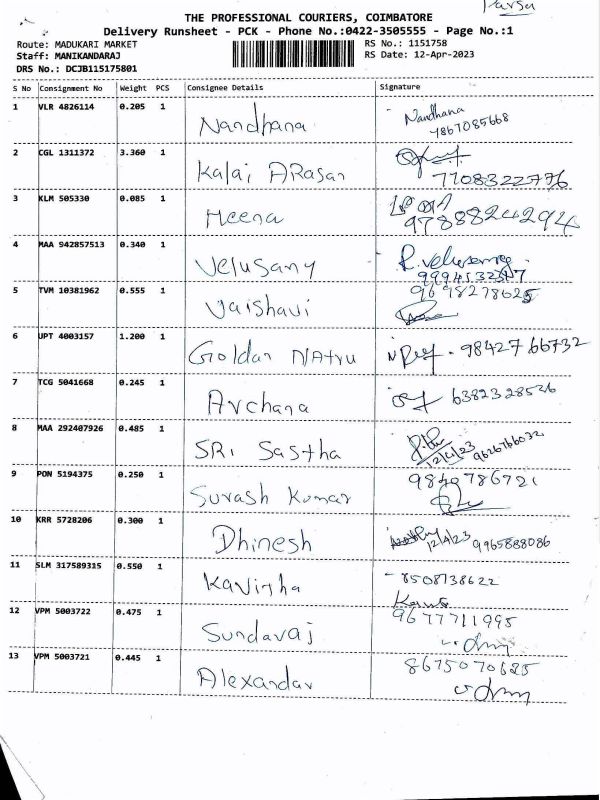 Parsa
THE PROFESSIONAL COURIERS, COIMBATORE
Delivery Runsheet - PCK - Phone No.:0422-3505555 - Page No.:1
Route: MADUKARI MARKET RS No.: 1151758
Staff: MANIKANDARAJ RS Date: 12-Apr-2023
DRS No.: DCJB115175801
S No Consignment No Weight PCS Consignee Details Signature
1 VLR 4826114 0.205 1 Nandhana Nandhana
7867085668
2 CGL 1311372 3.360 1 Kalai ARasan
7708322776
3 KLM 505330 0.085 1 Meena
9788824294
4 MAA 942857513 0.340 1 Velusany R.velusamy
5 TVM 10381962 0.555 1 Vaishavi 9698278625
6 UPT 4003157 1.200 1 Goldan NAtru 98427 66732
7 TCG 5041668 0.245 1 Archana 6382328526
8 MAA 292407926 0.485 1 SRi Sastha
12/4/23 9626766032
9 PON 5194375 0.250 1 Surash Kumar 9840786721
10 KRR 5728206 0.300 1 Dhinesh 12/4/23 9965888086
11 SLM 317589315 0.550 1 Kavitha 8508738622
12 VPM 5003722 0.475 1 Sundavaj 9677711995
13 VPM 5003721 0.445 1 Alexandar 8675070625